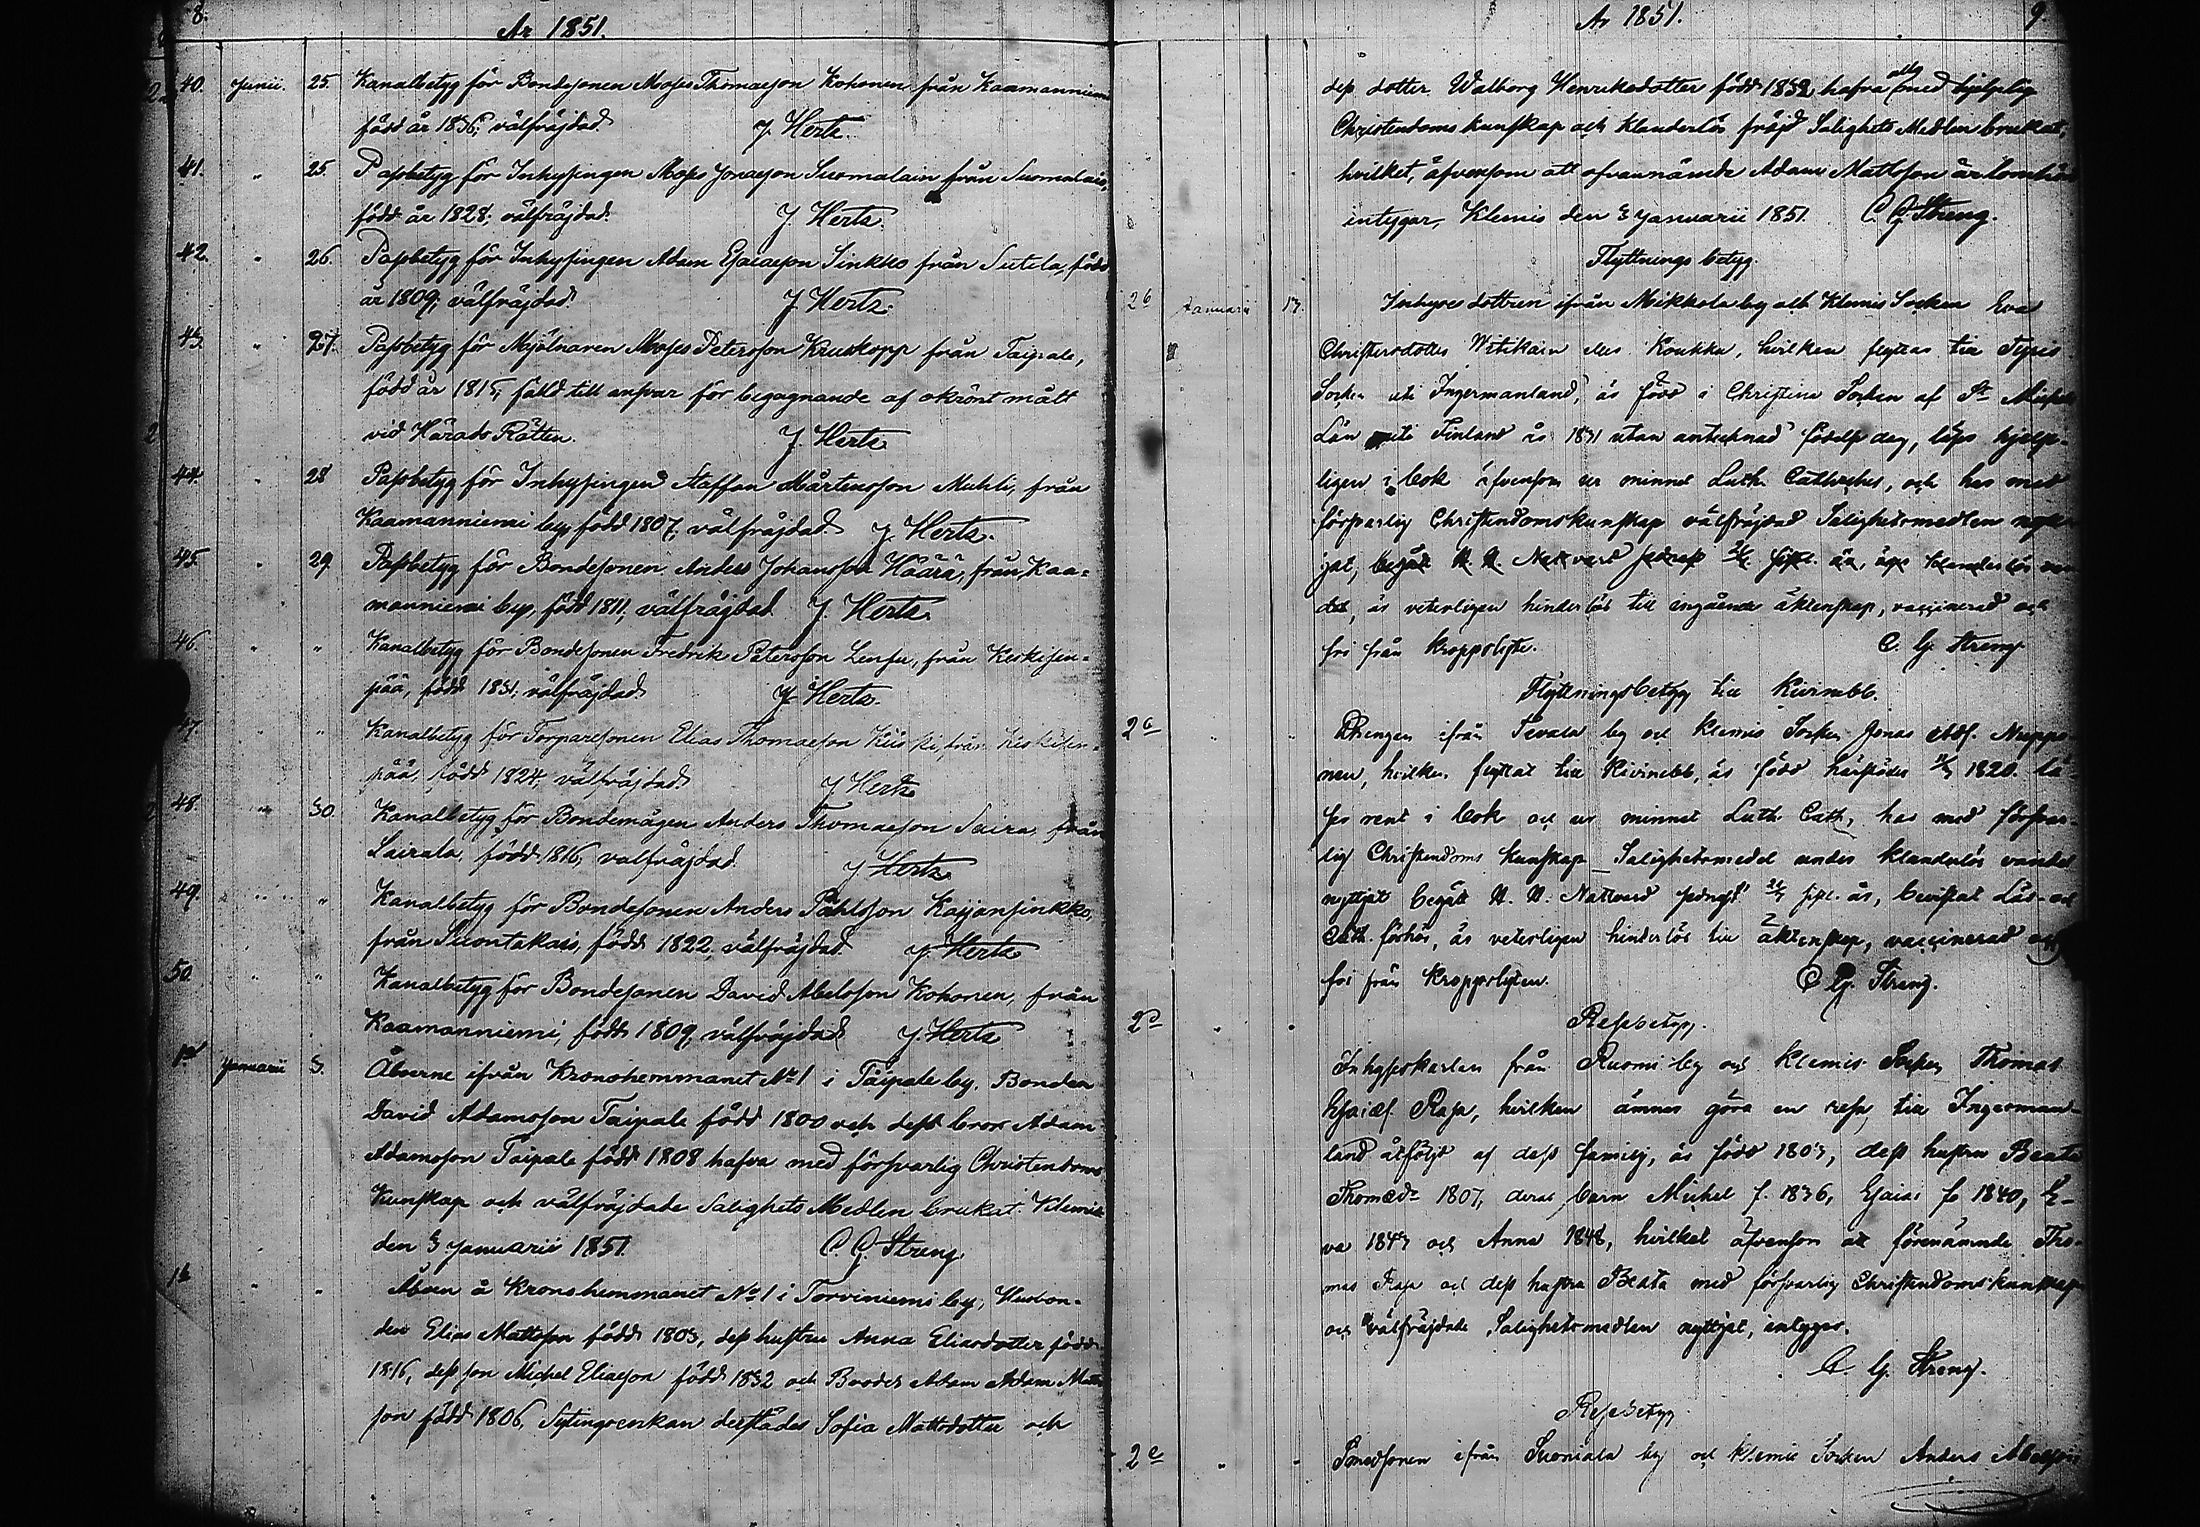 8.
År 1851.
40. Junii. 25. Kanalbetyg för Bondesonen Moses Thomasson Kohonen från Kaamanniemi
född år 1836; välfräjdad. J. Hertz.
41. " 25. Passbetyg för Inhysingen Moses Jonasson Suomalain från Suomalais,
född år 1828; välfräjdad. J. Hertz.
42. " 26. Passbetyg för Inhysingen Adam Esaiasson Sinkko från Sutela, född
år 1809; välfräjdad. J. Hertz.
43. " 27. Passbetyg för Mjölnaren Moses Petersson Kruskopp från Taipale,
född år 1815, fälld till ansvar för begagnande af okrönt mått
vid Härads Rätten. J. Hertz
44. " 28 Passbetyg för Inhysingen Staffan Mårtensson Muhli, från
Kaamanniemi by, född 1807, välfräjdad. J. Hertz.
45. " 29. Passbetyg för Bondesonen Anders Johansson Häärä, från Kaa-
manniemi by, född 1811, välfräjdad J. Hertz.
46. " " Kanalbetyg för Bondesonen Fredrik Petersson Lensu, från Keskisen-
pää, född 1831. välfräjdad J. Hertz.
47. " Kanalbetyg för Torparesonen Elias Thomasson Kiiski, från Keskisen-
pää, född 1824, välfräjdad J. Hertz
48. " 30. Kanalbetyg för Bondemågen Anders Thomasson Saira, från
Sairala, född 1816, välfräjdad. J. Hertz
49. " " Kanalbetyg för Bondesonen Anders Påhlsson Kaijansinkko,
från Suontakais, född 1822, välfräjdad. J. Hertz
50. " " Kanalbetyg för Bondesonen David Abelsson Kohonen, från
Kaamanniemi, född 1809, välfräjdad J. Hertz
1a Januarii 3. Åboerne ifrån Kronohemmanet No 1 i Taipale by, Bonden
David Adamsson Taipale född 1800 och dess bror Adam
Adamsson Taipale född 1808 hafva med försvarlig Christendoms
Kunskap och välfräjdade Salighets Medlen brukat. Klemis
den 3 Januarii 1851. C. G. Streng
1b " " Åboen å Kronohemmanet No 1 i Torviniemi by, Husbon-
den Elias Mattsson född 1803, dess hustru Anna Eliasdotter född
1816, dess son Michel Eliasson född 1832 och Broder Adam Matts
son född 1806, Sytingsenkan derstädes Sofia Mattsdotter och
År 1851. 9.
dess dotter Walborg Henriksdotter född 1832, hafva alla med hjelplig
Christendoms kunskap och klanderlös fräjd Salighets Medlen brukat;
hvilket, äfvensom att ofvannämde Adam Mattsson är
intygar, Klemis den 3 Januarii 1851. C. G. Streng.
Flyttnings betyg.
2b Januarii 13. Inhyses dottren ifrån Mikkola by och Klemis Socken Eva
Christersdotter Witikain eller Koukku, hvilken flyttar till Tyris
Socken uti Ingermanland, är född i Christina Socken af St Michels
Län uti Finland år 1831 utan antecknad födelse dag, läser hjelp-
ligen i bok äfvensom ur minnet Luth. Catheches, och har med
försvarlig Christendomskunskap välfräjdad Salighetsmedlen nytt-
jat, begått H. H. Nattvard är,
det, är veterligen hinderlös till ingående äktenskap, vaccinerad och
fri från kroppslyte. C. G. Streng
Flyttningsbetyg till Kivinebb.
2c " " Drengen ifrån Tervala by och Klemis Socken Jonas Nuppo-
nen, hvilken flyttat till Kivinebb, är född härstädes 1820. lä-
ser rent i bok och ur minnet Luth. Cath., har med försvar-
lig Christendoms kunskap Salighetsmedel under klanderlös vandel
nyttjat begått H. H. Nattvard sednast sistl. år, bevistat Läs- och
Cath. förhör, är veterligen hinderlös till äktenskap, vaccinerad och
fri från kroppslyten. C. G. Streng.
Resebetyg.
2d " " Inhyseskarlen från Ruomi by och Klemis Socken Thomas
Esaiæs. Rasa, hvilken ämnar göra en resa till Ingerman-
land åtföljd af dess familj, är född 1803, dess hustru Beata
Thomædr 1807, deras barn Michel f. 1836, Esaias f. 1840, E-
va 1843 och Anna 1848, hvilket äfvensom att förenämnde Tho-
mas Rasa och dess hustru Beata med försvarlig Christendomskunskap
och välfräjdade Salighetsmedlen nyttjat, intygar.
C. G. Streng.
Resebetyg
2e " " Smedsonen ifrån Suoniala by och Klemis Socken Anders Abelsson